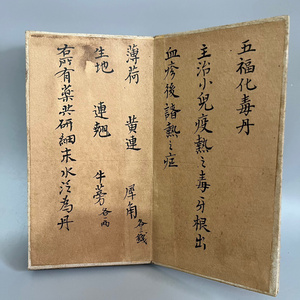 五福化毒丹
主治小兒疫熱之毒牙根出
血疹後諸熱之症
薄荷 黃連 犀角 各錢
生地 連翹 牛蒡 各兩
右所有藥共研細末水泛為丹